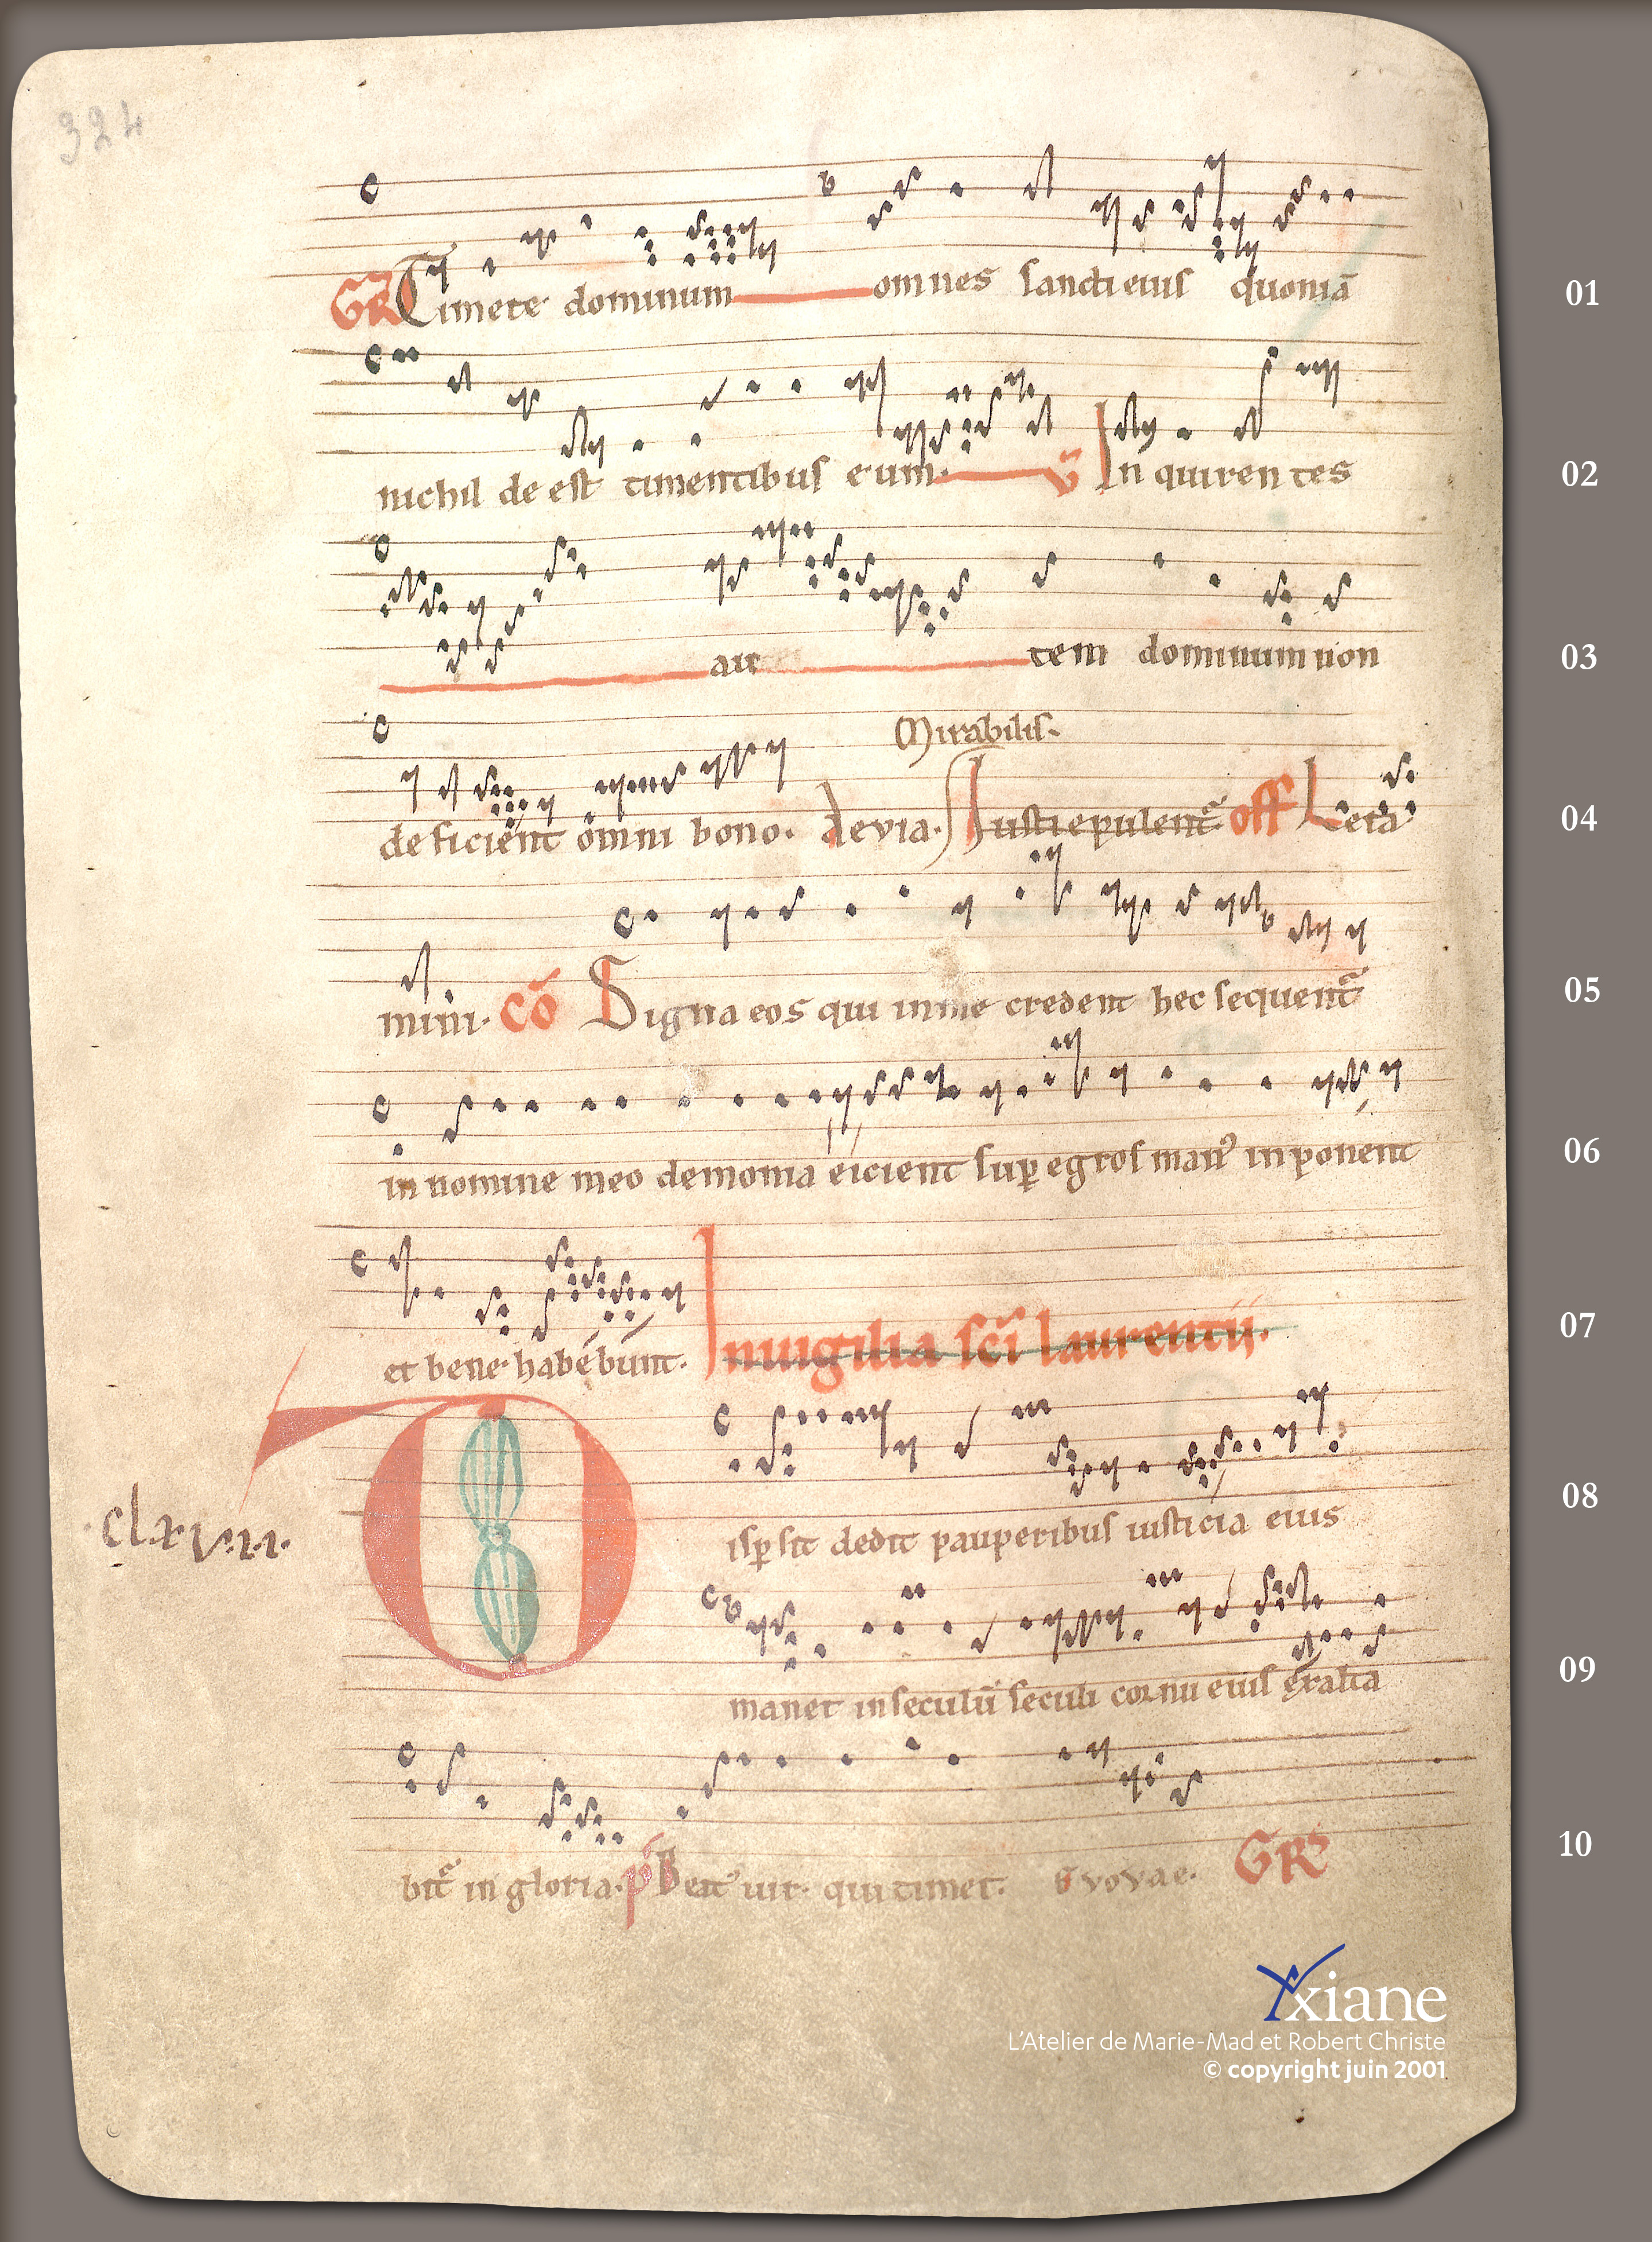 324
GR Timete dominum omnes sancti eius quoniā
01
nichil de est timentibus eum. V̄ Inquirentes
02
autem dominum non
03
Mirabilis.
deficient omni bono. aevia. Iusti epulent᷑ off Leta
04
mini. cō Signa eos qui in me credent hec sequent᷑
05
in nomine meo demonia eicient sup egros man᾽ inponent
06
et bene habebunt. In uigilia sc̄i laurentij.
07
Dispsit dedit pauperibus iusticia eius
08
clxvii.
manet in seculū seculi cornu eius exalta
09
bit᷑ in gloria. p̄ Beat᾽ uir qui timet. Evovae. GR
10
Yxiane
L'Atelier de Marie-Mad et Robert Christe
© copyright juin 2001